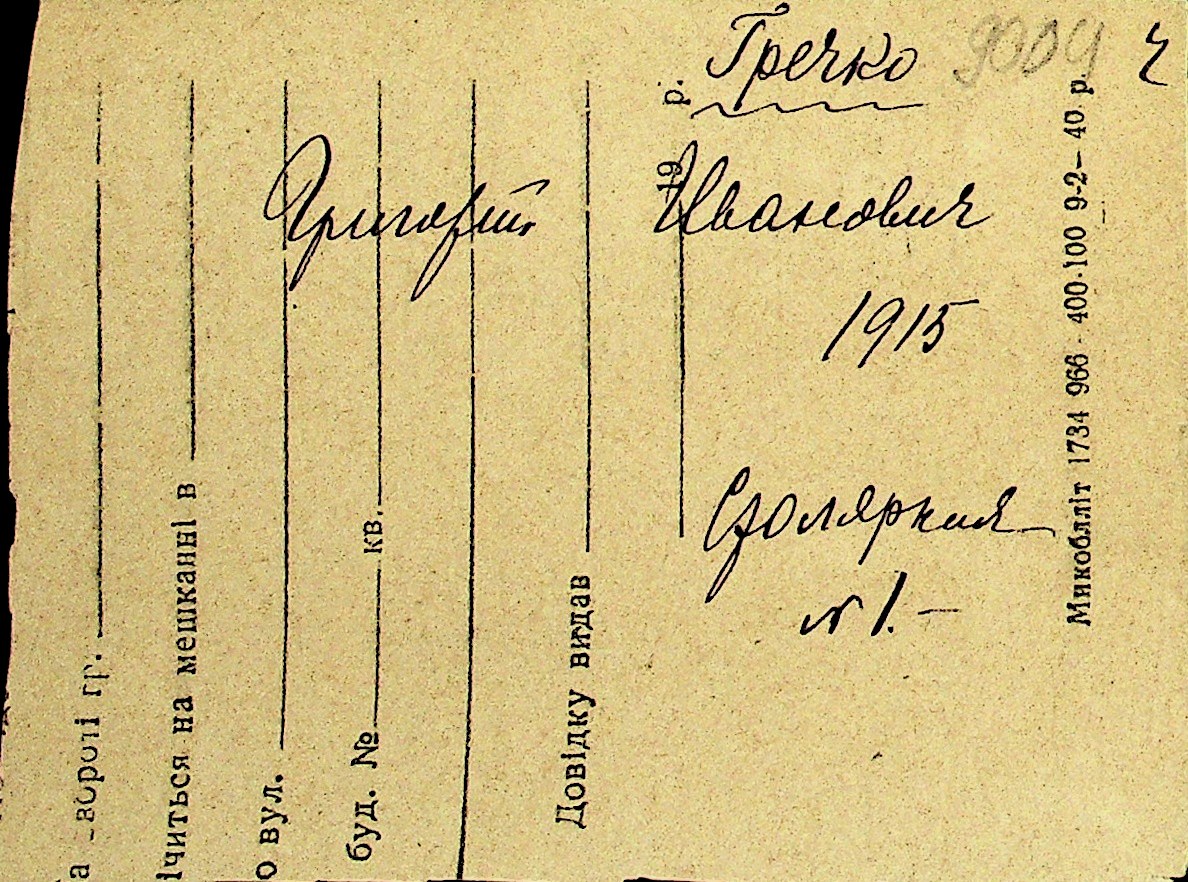 Гречко
9004
Григорий Иванович
1915
Столярная
№ 1. –
на звороті гр.
ічиться на мешканні в
о вул.
буд. № кв.
Довідку видав
19 р.
Микобллiт 1734 966 - 400·100 9-2— 40 р